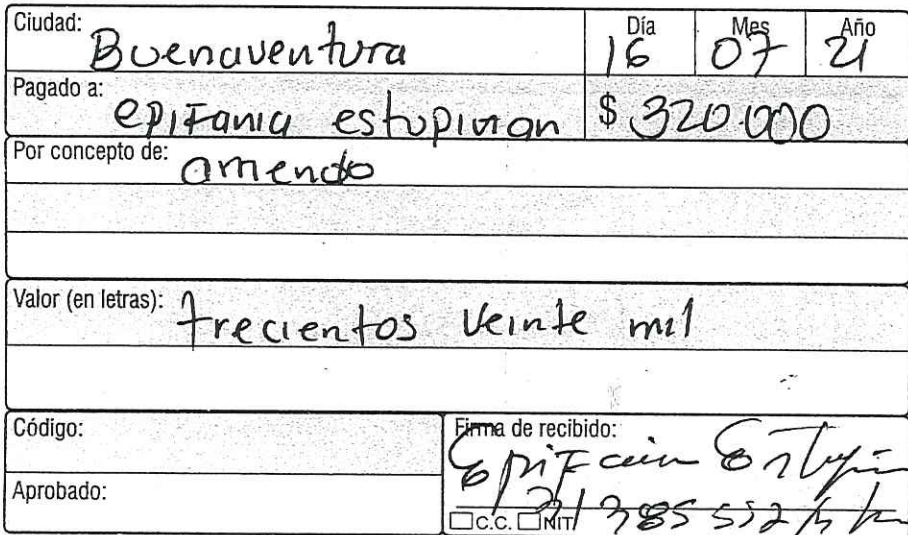 Ciudad: Buenaventura
Día 16 Mes 07 Año 21
Pagado a: epifania estupiñan $ 320.000
Por concepto de: arriendo
Valor (en letras): trecientos veinte mil
Código:
Firma de recibido:
Aprobado:
C.C. NIT